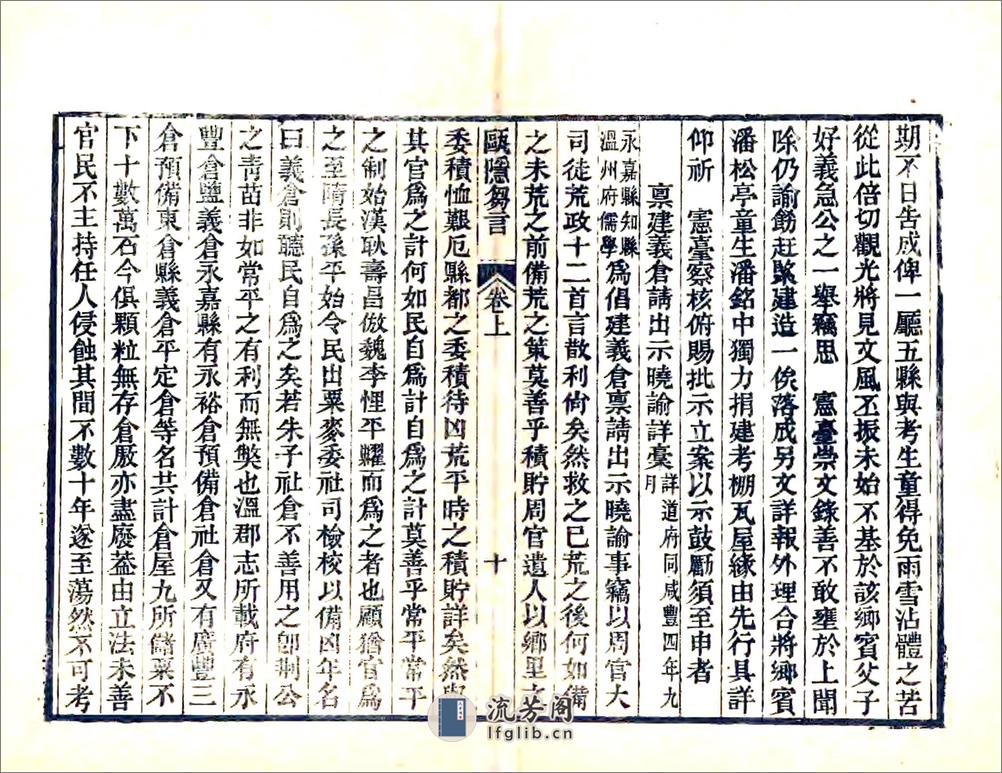 期不日告成俾一廳五縣與考生童得免雨雪沾體之苦
從此倍切觀光將見文風丕振未始不基於該鄉賓父子
好義急公之一舉竊思　憲臺崇文錄善不敢壅於上聞
除仍諭飭赶緊建造一俟落成另文詳報外理合將鄉賓
潘松亭童生潘銘中獨力捐建考棚瓦屋緣由先行具詳
仰祈　憲臺察核俯賜批示立案以示鼓勵須至申者
稟建義倉請出示曉諭詳稾詳道府同咸豐四年九月
永嘉縣知縣溫州府儒學爲倡建義倉稟請出示曉諭事竊以周官大
司徒荒政十二首言散利尙矣然救之已荒之後何如備
之未荒之前備荒之策莫善乎積貯周官遺人以鄉里之
甌隱芻言　卷上　十
委積恤艱厄縣都之委積待凶荒平時之積貯詳矣然與
其官爲之計何如民自爲計自爲之計莫善乎常平常平
之制始漢耿壽昌倣魏李悝平糶而爲之者也顧猶官爲
之至隋長孫平始令民出粟麥委社司檢校以備凶年名
曰義倉則聽民自爲之矣若朱子社倉不善用之卽荆公
之靑苗非如常平之有利而無弊也溫郡志所載府有永
豐倉鹽義倉永嘉縣有永裕倉預備倉社倉又有廣豐三
倉預備東倉縣義倉平定倉等名共計倉屋九所儲粟不
下十數萬石今俱顆粒無存倉厫亦盡廢葢由立法未善
官民不主持任人侵蝕其間不數十年遂至蕩然不可考
流芳阁
lfglib.cn